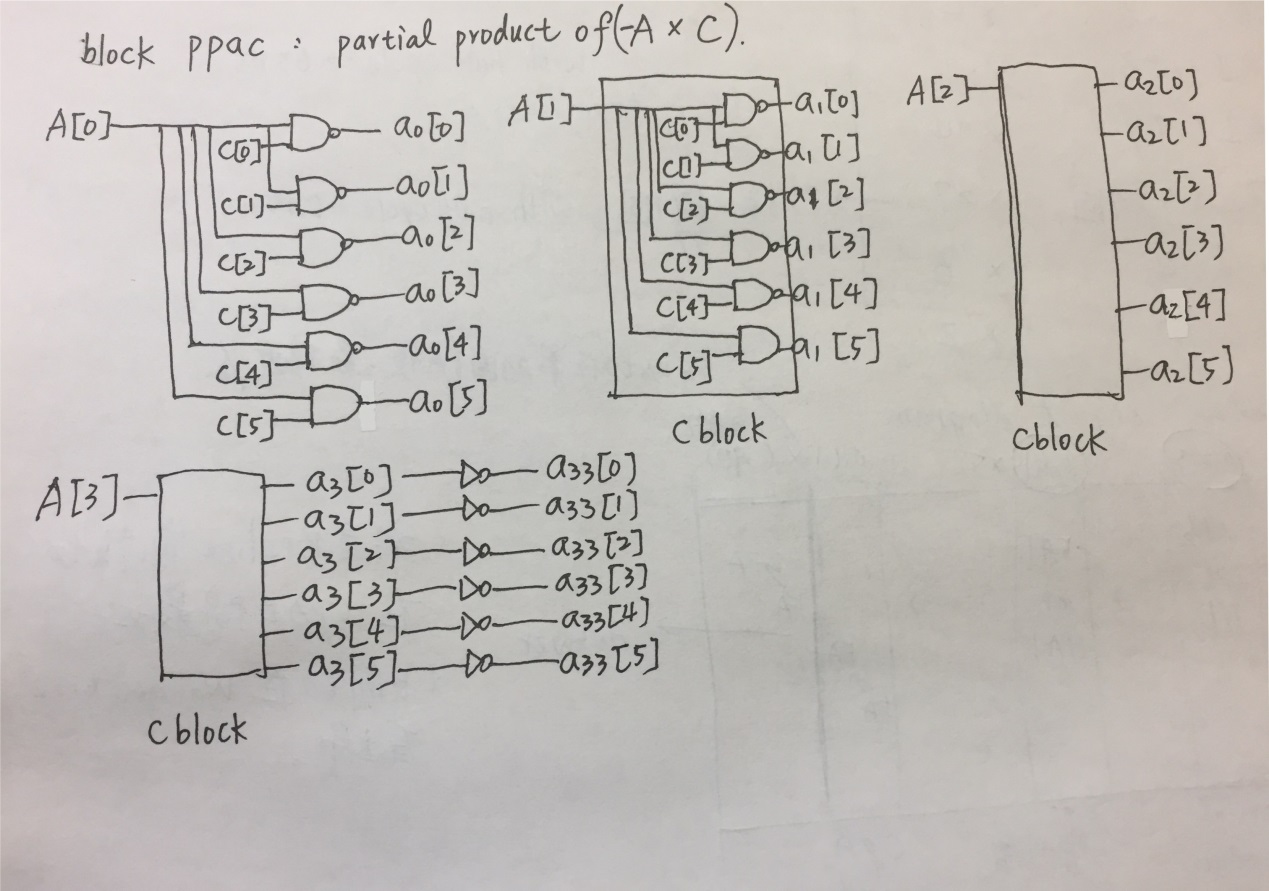 block ppac : partial product of (-A × C).
A[0]
C[0]
a0[0]
C[1]
a0[1]
C[2]
a0[2]
C[3]
a0[3]
C[4]
a0[4]
C[5]
a0[5]
A[1]
C[0]
a1[0]
C[1]
a1[1]
C[2]
a1[2]
C[3]
a1[3]
C[4]
a1[4]
C[5]
a1[5]
C block
A[2]
a2[0]
a2[1]
a2[2]
a2[3]
a2[4]
a2[5]
Cblock
A[3]
a3[0] a33[0]
a3[1] a33[1]
a3[2] a33[2]
a3[3] a33[3]
a3[4] a33[4]
a3[5] a33[5]
C block